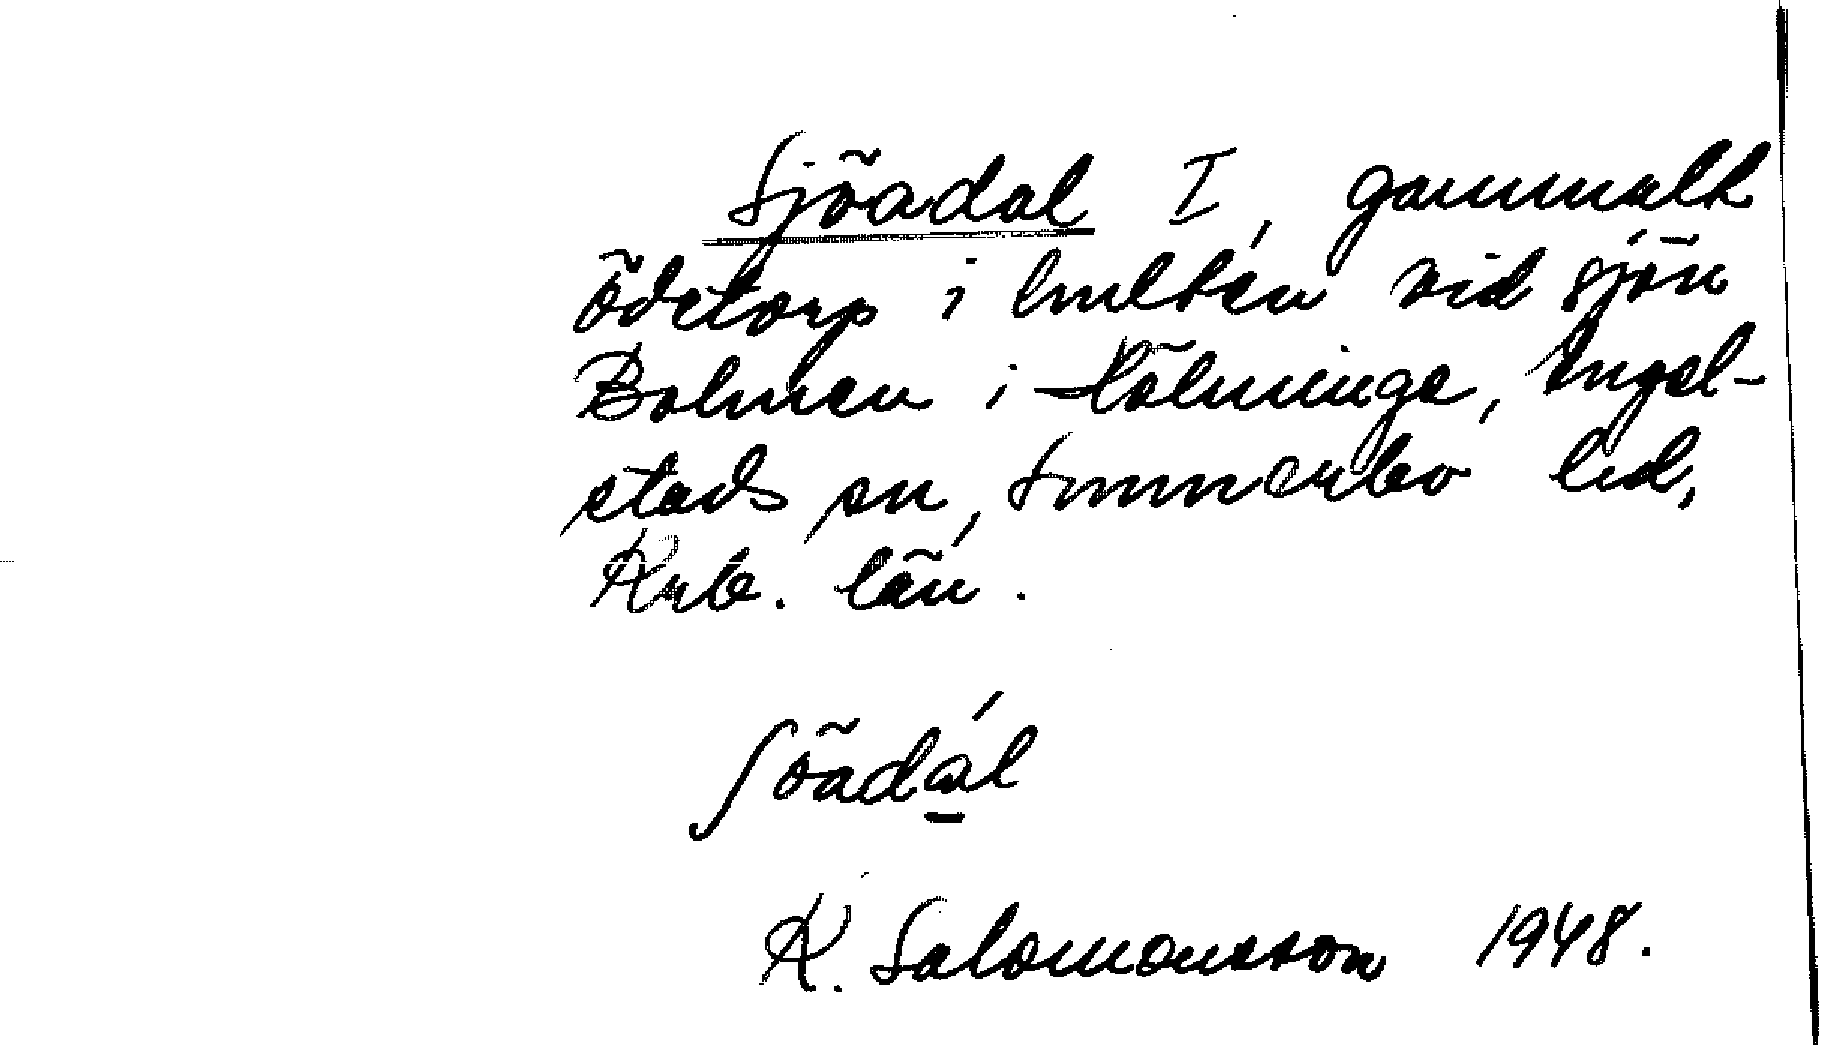 Sjöadal I, gammalt
ödetorp i hulten vid sjön
Bolmen i Hölminge, Angel-
stads sn, Sunnerbo hd,
Krb. län.
ſöadál
K. Salomonsson 1948.